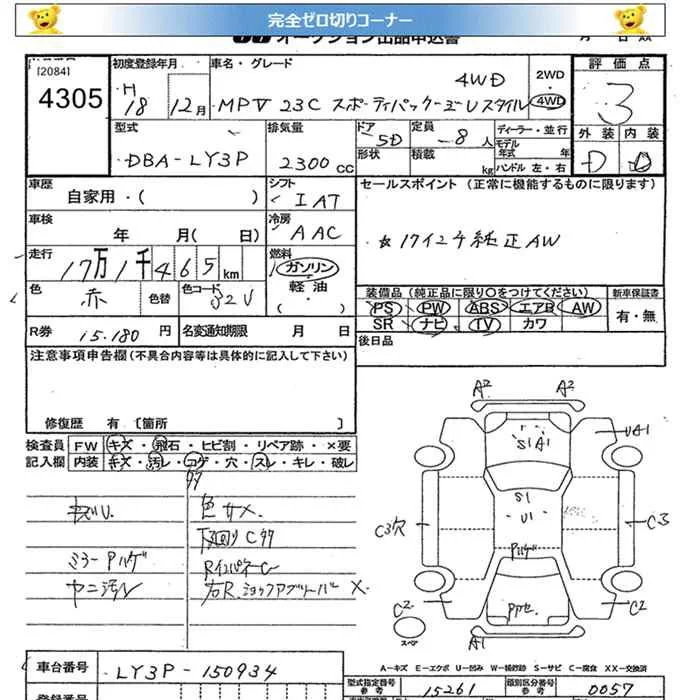 完全ゼロ切りコーナー
[2084]
4305
初度登録年月
H
18 12月
車名・グレード
4WD
MPV 23C スポーティパッケージ Uスタイル
2WD
4WD
評価点
3
外装 内装
D D
型式
DBA-LY3P
排気量
2300 CC
ドア
5D
形状
定員
8 人
積載
kg
ディーラー・並行
モデル年式 年
ハンドル 左・右
車歴
自家用・( )
シフト
IAT
車検
年 月( 日)
冷房
AAC
走行
17万1千465km
燃料
ガソリン
軽油
・( )
色
赤
色替
色コード
32V
R券
15.180 円
名変通知期限 月 日
セールスポイント(正常に機能するものに限ります)
☆17インチ純正AW
装備品(純正品に限り〇をつけてください)
PS PW ABS エアB AW
SR ナビ TV カワ
新車保証書
有・無
後日品
注意事項申告欄(不具合内容等は具体的に記入して下さい)
修復歴 有〔箇所 〕
検査員
記入欄
FW キズ・飛石・ヒビ割・リペア跡・×要
内装 キズ・汚レ・コゲ・穴・スレ・キレ・破レ
キズU.
色サメ.
下回りCタタ
ミラーPハゲ
RインパネC
ヤニ汚レ
右R.ショックアブソーバー X.
A2 A2
UA1
S1A1
S1
U1
C3欠
C3
Pハゲ
C2
C2
スペア
A1
車台番号
LY3P-150934
A-キズ E-エクボ U-凹み W-補修跡 S-サビ C-腐食 XX-交換済
型式指定番号
参考
15261
類別区分番号
参考
0057